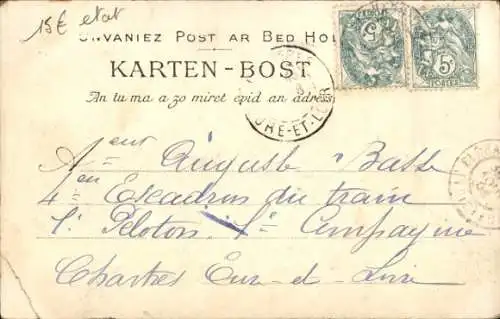 15€ etat
UNVANIEZ POST AR BED HOL
KARTEN-BOST
An tu ma a zo miret evid an adres
5
5c
URE-ET-LOIR
Auguste Basse
4e Escadron du train
1r Peloton, 1e Compagnie
Chartres Eure-et-Loire